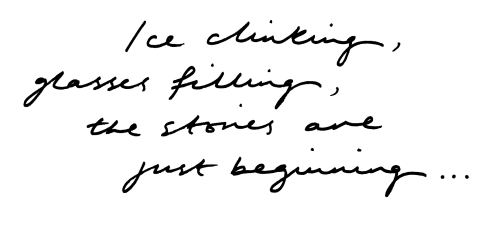 Ice clinking,
glasses filling,
the stories are
just beginning...